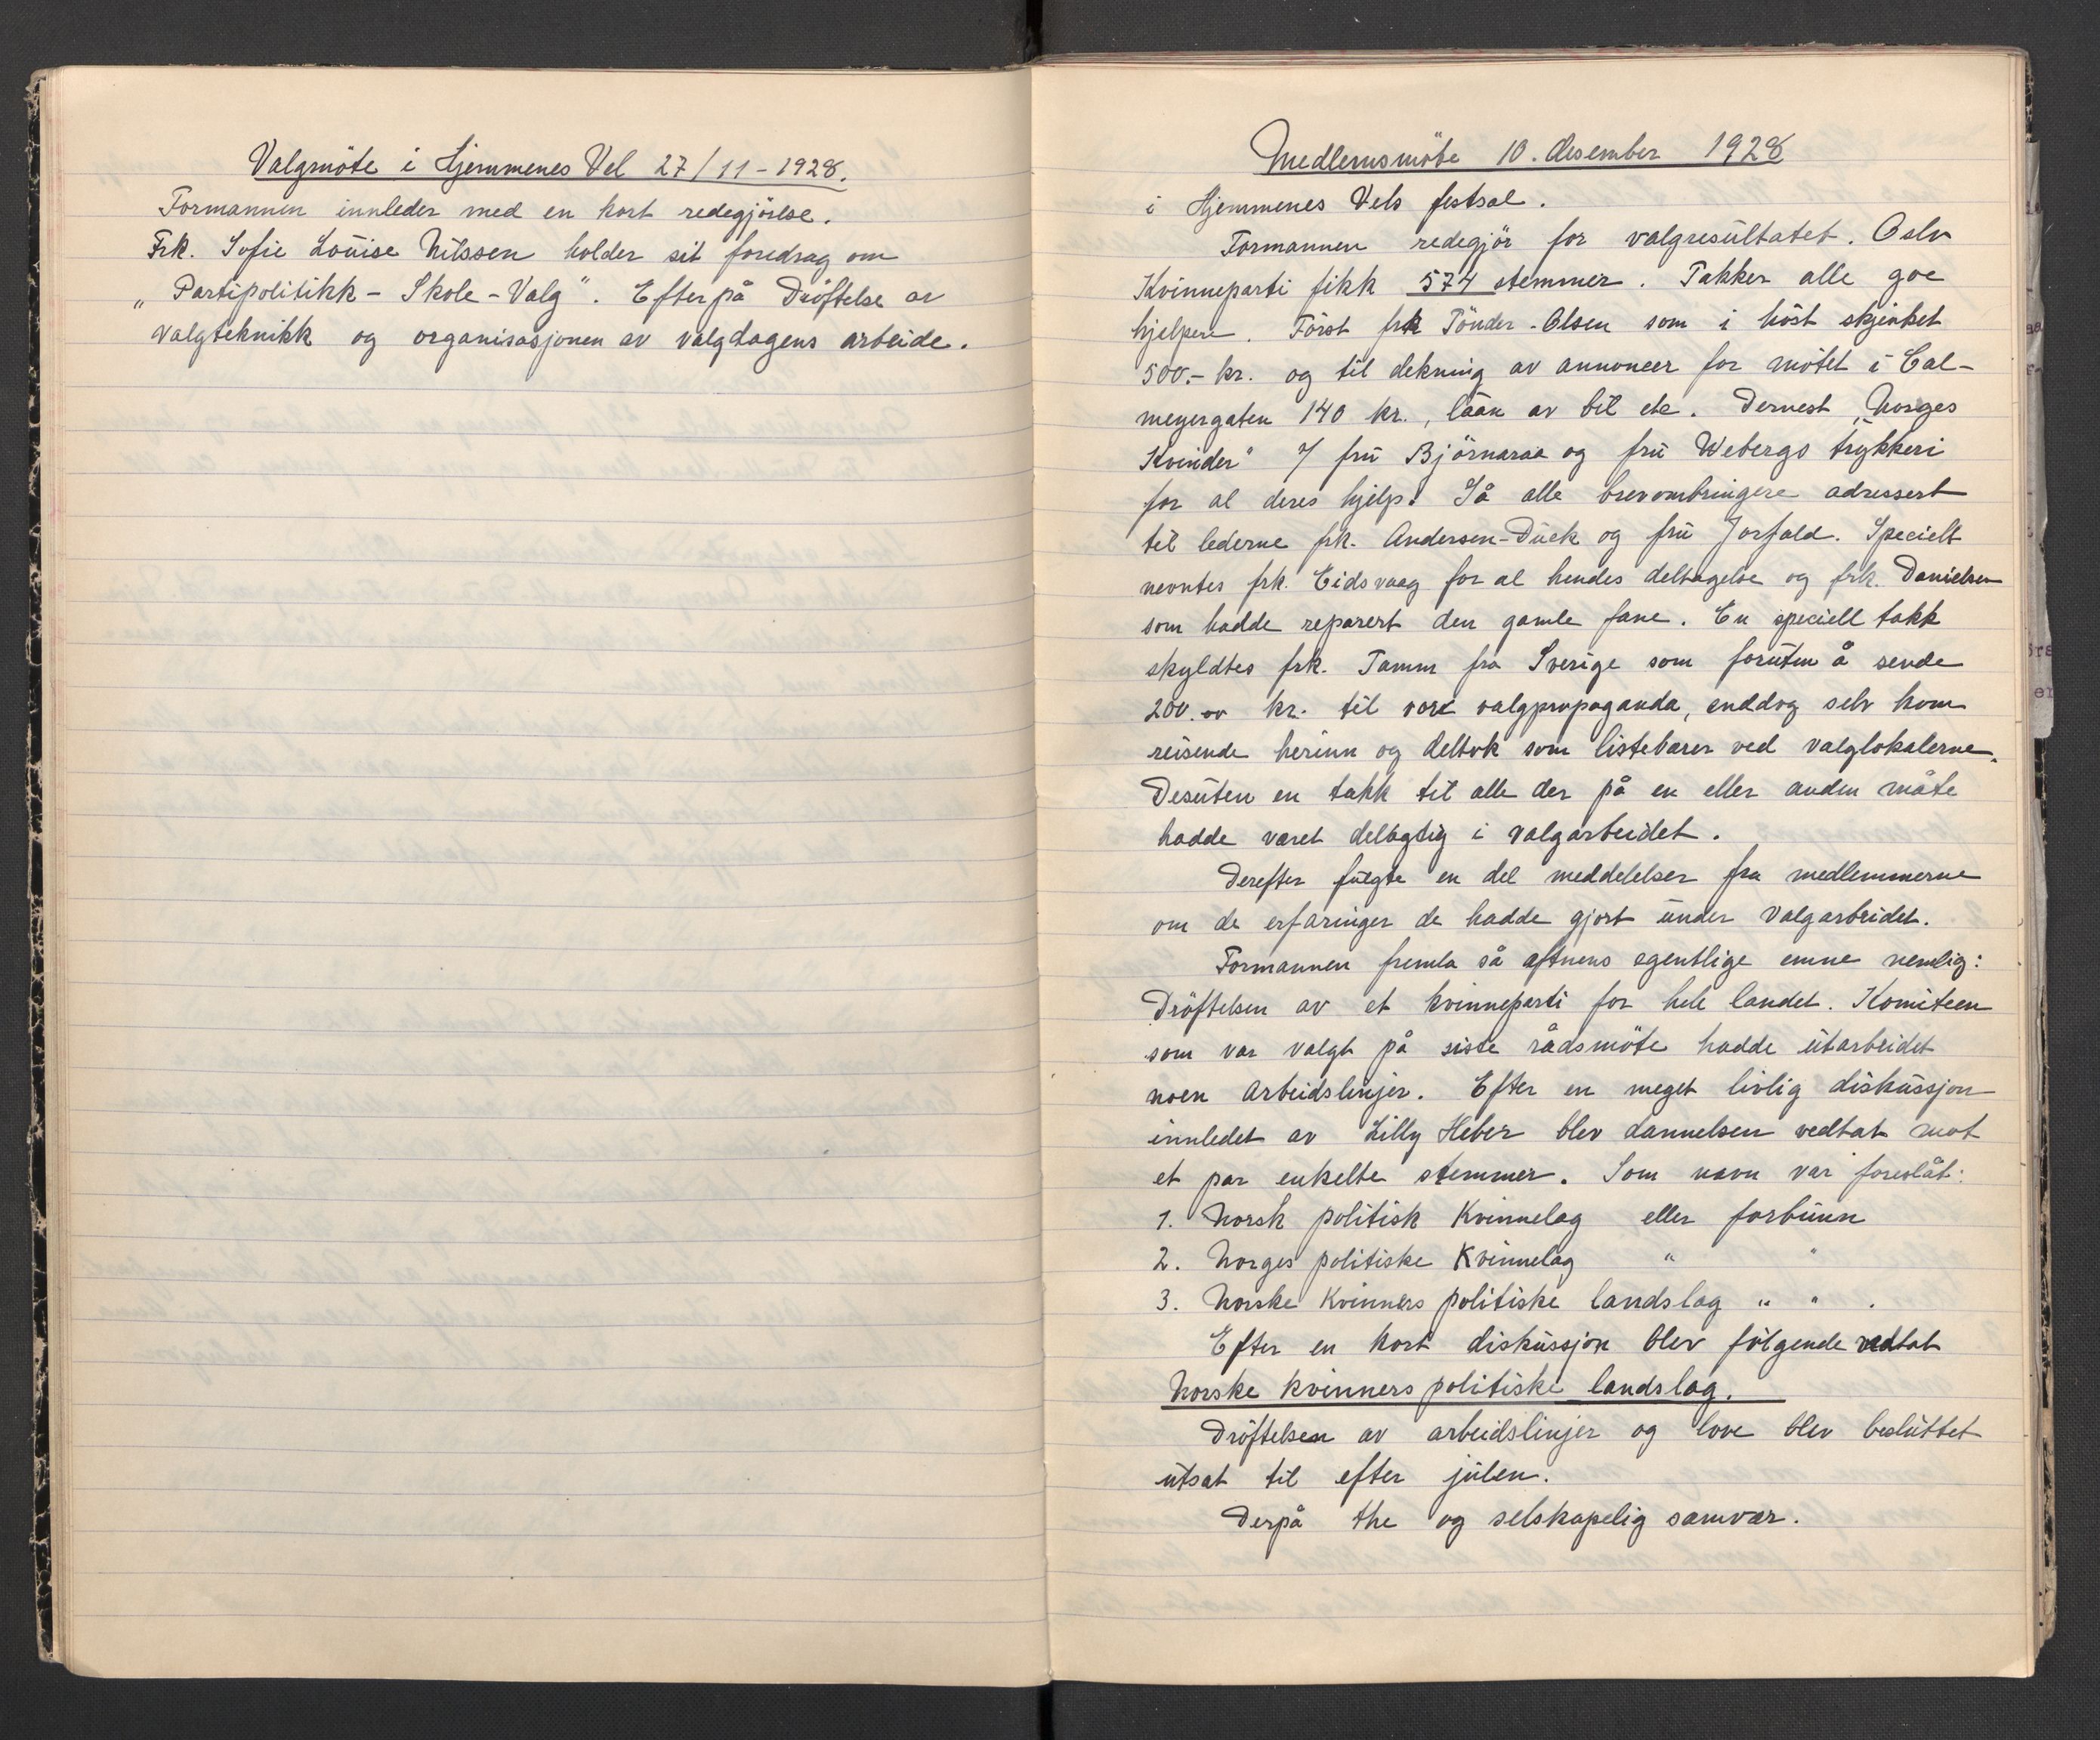 Valgmöte i Hjemmenes Vel 27/11-1928.
Formannen innleder med en kort redegjörelse.
Frk. Sofie Louise Nilssen holder sit foredrag om
„Partipolitikk - Skole - Valg". Efterpå Dröftelse av
valgteknikk og organisasjonen av valgdagens arbeide.
Medlemsmöte 10. desember 1928
i Hjemmenes Vels festsal.
Formannen redegjör for valgresultatet. Oslo
Kvinneparti fikk 574 stemmer. Takker alle goe
hjelpere. Först frk Tönder-Olsen som i höst skjenket
500.- kr. og til dekning av annoncer for mötet i Cal-
meyergaten 140 kr., låan av bil etc. Dernest „Norges
Kvinder" v/ fru Björnaraa og fru Webergs trykkeri
for al deres hjelp. Så alle brevombringere adressert
til lederne frk. Andersen-Dück og fru Jorfald. Specielt
nevntes frk. Eidsvaag for al hendes deltagelse og frk. Danielsen
som hadde reparert den gamle fane. En speciell takk
skyldtes frk. Tamm fra Sverige som foruten å sende
200.00 kr. til vor valgpropaganda, enddog selv kom
reisende herinn og deltok som listebærer ved valglokalerne.
Desuten en takk til alle der på en eller anden måte
hadde været delagtig i valgarbeidet.
Derefter fulgte en del meddelelser fra medlemmerne
om de erfaringer de hadde gjort under valgarbeidet.
Formannen fremla så aftnens egentlige emne nemlig:
Dröftelsen av et kvinneparti for hele landet. Komiteen
som var valgt på siste rådsmöte hadde utarbeidet
noen arbeidslinjer. Efter en meget livlig diskussjon
innledet av Lilly Heber blev dannelsen vedtat mot
et par enkelte stemmer. Som navn var foreslåt:
1. Norsk politisk Kvinnelag eller forbunn
2. Norges politiske Kvinnelag " "
3. Norske Kvinners politiske landslag " " .
Efter en kort diskussjon blev fölgende vedtat
Norske kvinners politiske landslag.
Dröftelsen av arbeidslinjer og love blev besluttet
utsat til efter julen.
Derpå the og selskapelig samvær.